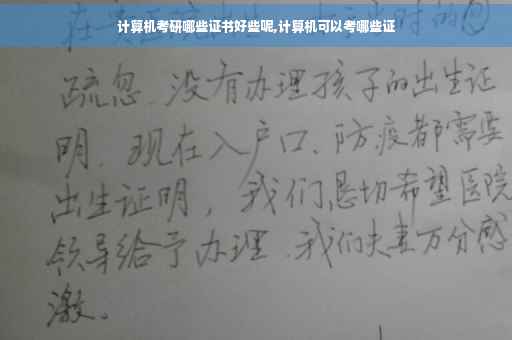 计算机考研哪些证书好些呢,计算机可以考哪些证
疏忽、没有办理孩子的出生证
明、现在入户口、防疫都需要
出生证明，我们恳切希望医院
领导给予办理、我们夫妻万分感
激。